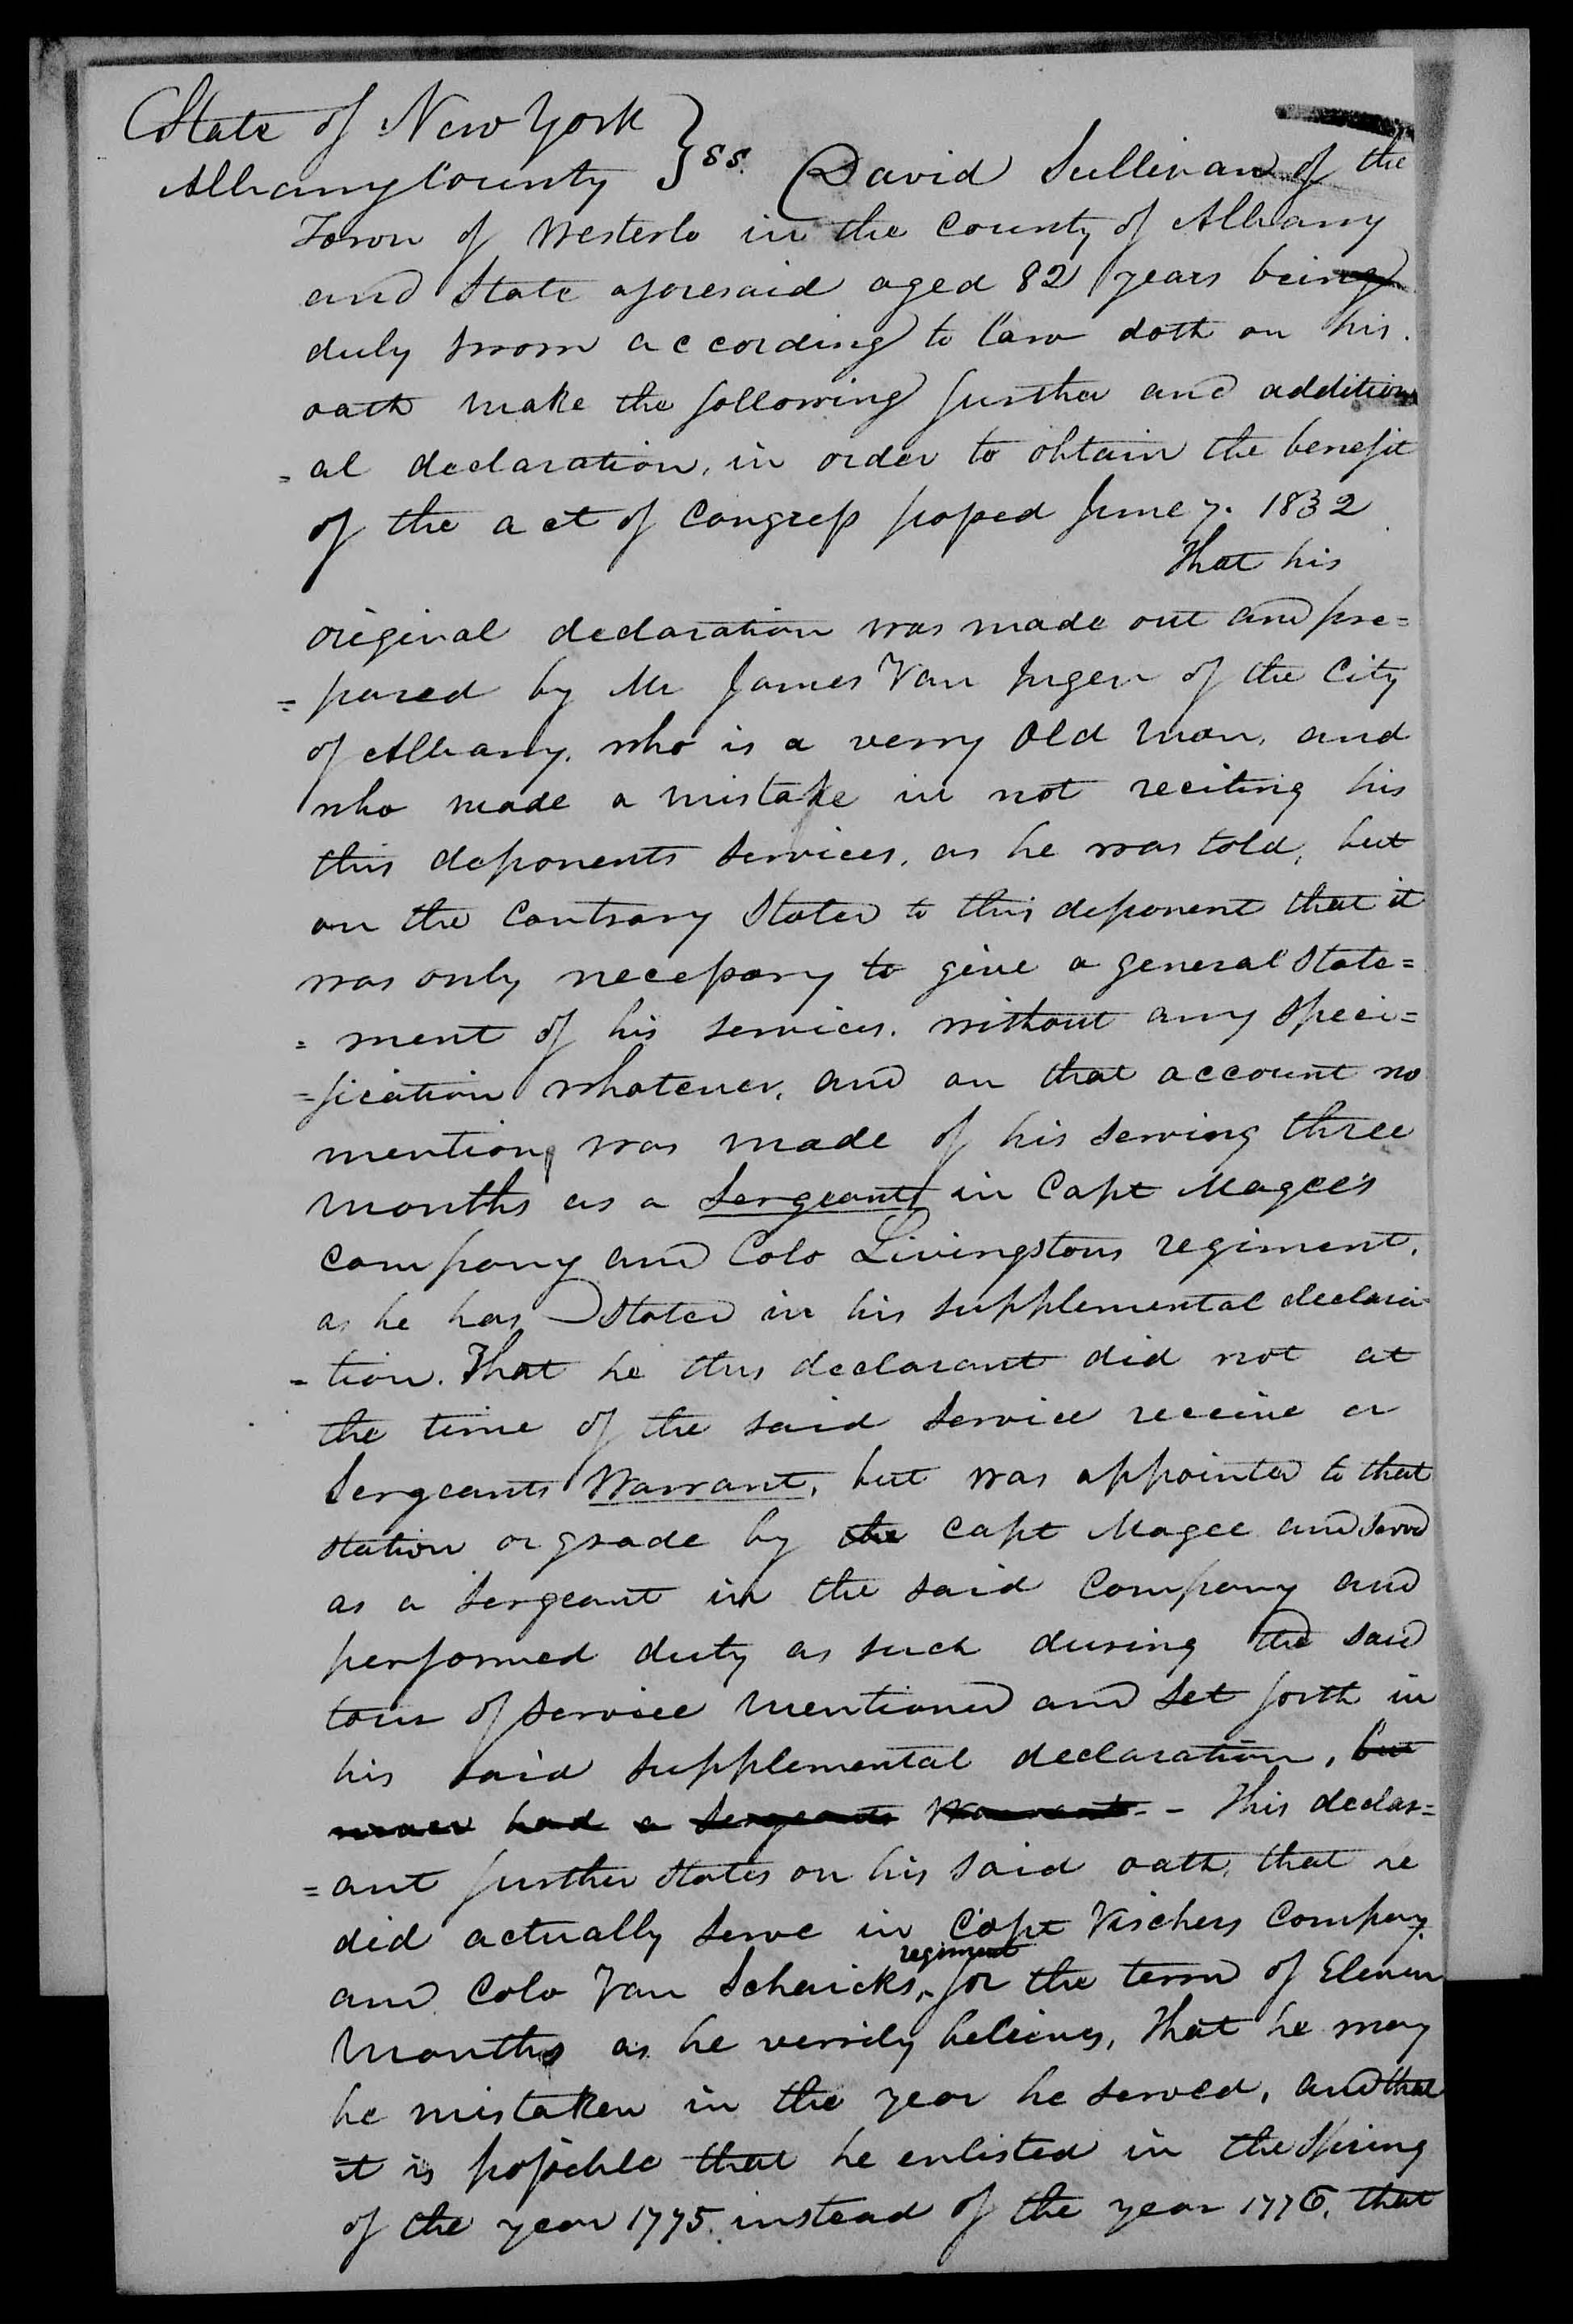 State of New York
Albany County } ss. David Sullivan of the
Town of Westerlo in the County of Albany
and State aforesaid aged 82 years being
duly sworn according to law doth on his
oath make the following further and addition
= al declaration, in order to obtain the benefit
of the act of Congress passed June 7. 1832
That his
original declaration was made out and pre=
= pared by Mr James Van Ingen of the City
of Albany, who is a verry old man, and
who made a mistake in not reciting his
this deponents services, as he was told, but
on the contrary Stated to this deponent that it
was only necessary to give a general State=
= ment of his services. without any speci=
=fication whatever, and on that account no
mention was made of his serving three
months as a Sergeant in Capt Magee's
company and Colo Livingstons regiment,
as he has stated in his supplemental declara
= tion. That he this declarant did not at
the time of the said service receive a
Sergeants Warrant, but was appointed to that
station or grade by the Capt Magee and served
as a Sergeant in the said Company and
performed duty as such during the said
tour of service mentioned and set forth in
his said supplemental declaration, but
never had a Sergeants Warrant - - This declar=
= ant further states on his said oath, that he
did actually serve in Capt Vischers Company
regiment
and Colo Van Schaicks, for the term of Eleven
months as he verrily believes, That he may
be mistaken in the year he served, and that
it is possible that he enlisted in the Spring
of the year 1775. instead of the year 1776, that